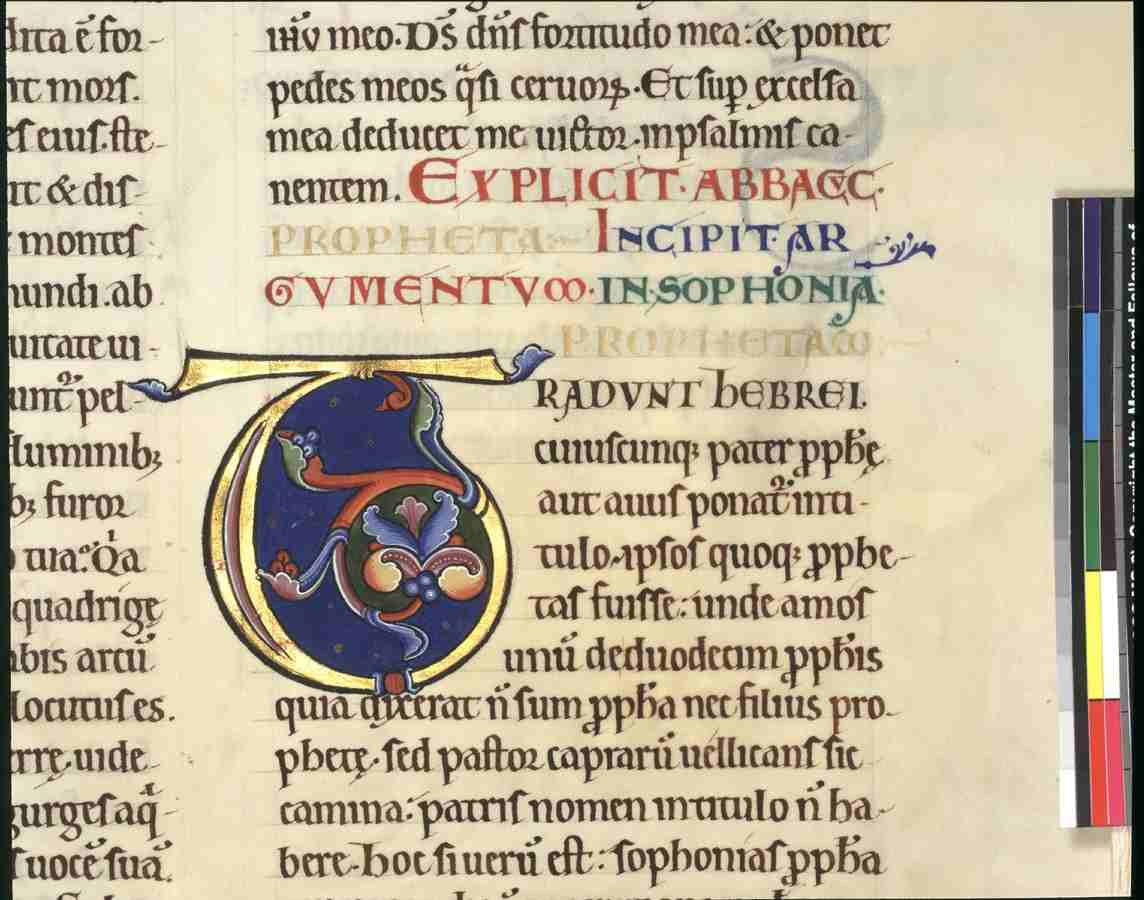 dita ē for-
nt mors.
es eius. ste-
nt & dis-
montes
mundi. ab
uitate ui-
unt᷑ pel-
fluminib;
b; furor
tua. Q̇a
quadrigę
abis arcū
locutus es.
erre. uide-
gurges aq̄
uocē suā.
ihū meo. Ds̄ dn̄s fortitudo mea: & ponet
pedes meos q̈si ceruoꝝ. Et sup̱ excelsa
mea deducet me uictor. in psalmis ca-
nentem. EXPLICIT. ABBACVC.
PROPHETA. INCIPIT. AR
GVMENTVM. IN. SOPHONIA.
PROPHETAM
TRADVNT hEBREI.
cuiuscunq; pater ꝓph̄ę
aut auus ponat᷑ in ti-
tulo. ipsos quoq; ꝓphe-
tas fuisse: unde amos
unū de duodecim ꝓph̄is
quia dixerat n̄ sum ꝓph̄a nec filius pro-
phetę. sed pastor caprarū uellicans sic
camina: patris nomen in titulo n̄ ha-
bere. hoc si uerū est: sophonias ꝓph̄a